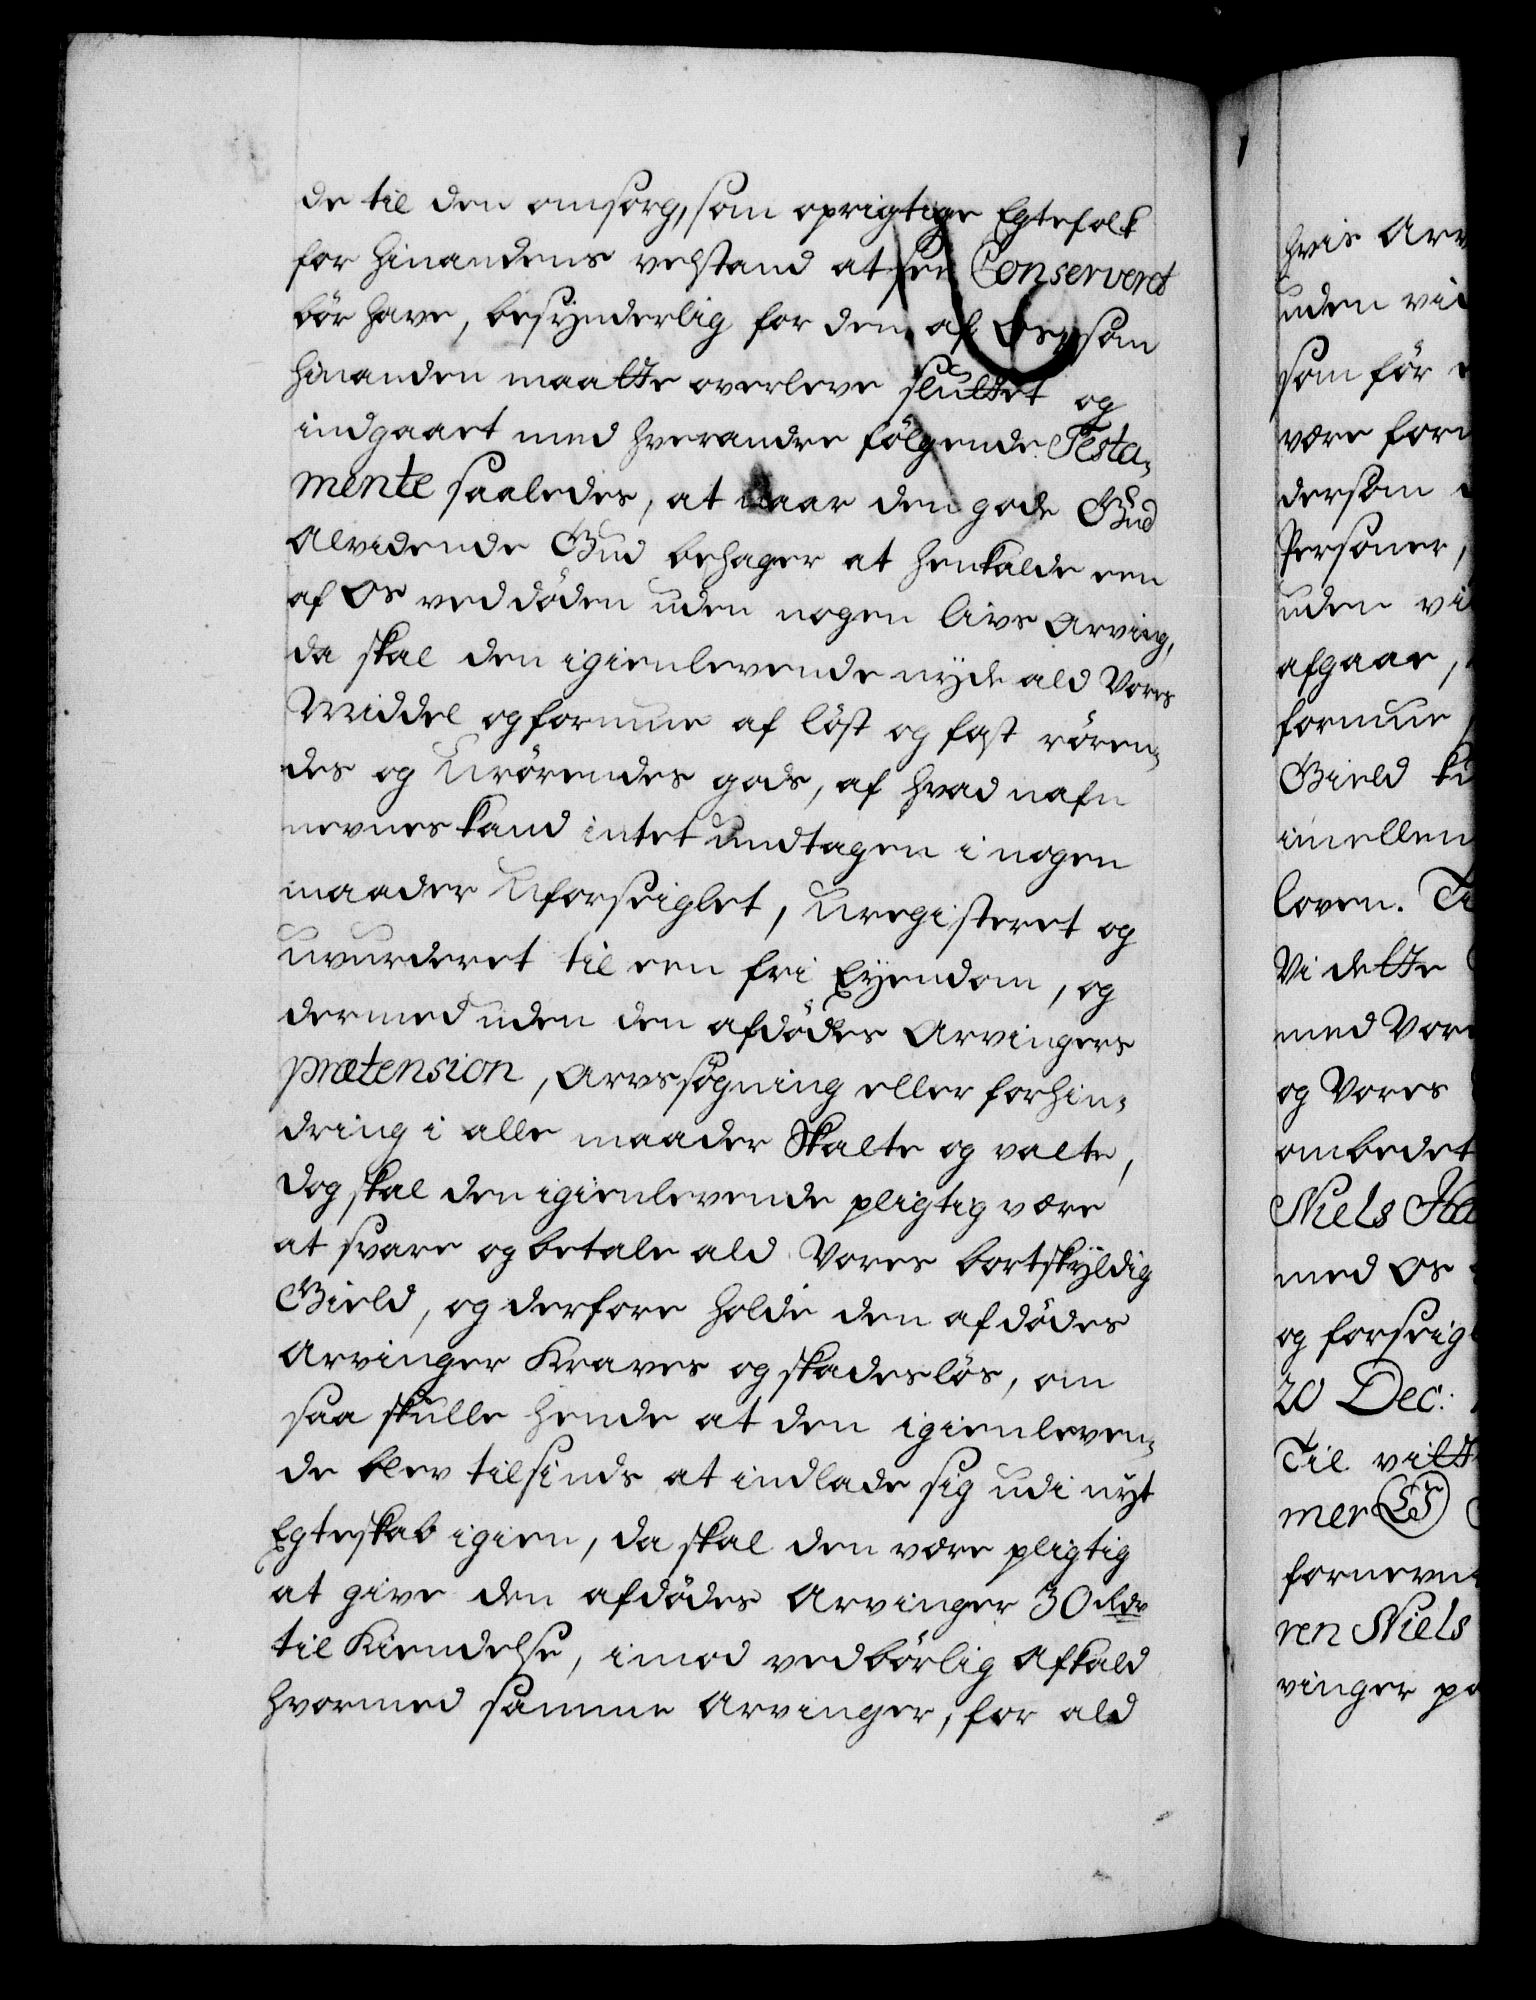 de til den omsorg, som oprigtige Egtefolk
for hinandens velstand at see Conserveret
bör have, besynderlig for den af Os, som
hinanden maatte overleve sluttet og
indgaaet med hverandre fölgende Testa-
mente saaledes, at naar den gode Gud
Alvidende Gud behager at henkalde een
af Os ved döden uden nogen livs Arving,
da skal den igienlevende nyde ald Vores
Middel og formue af löst og fast rören-
des og Urörendes gods, af hvad nafn
nevnes kand intet undtagen i nogen
maader Uforseiglet, Uregisteret og
Uvurderet til een fri Eyendom, og
dermed uden den afdödes Arvingers
prætension, Arvssögning eller forhin-
dring i alle maader Skalte og valte,
dog skal den igienlevende pligtig være
at svare og betale ald Vores bortskyldig
Gield, og derfore holde den afdödes
Arvinger Kraves og skadeslös, om
saa skulle hende at den igienleven-
de blev tilsinds at indlade sig udi nyt
Egteskab igien, da skal den være pligtig
at give den afdödes Arvinger 30 Rdr
til Kiendelse, imod vedbörlig Afkald
hvormed samme Arvinger, for ald
hvis Arv
uden vid
som för
være for
dersom
Personer,
uden vi
afgaar,
formue
Gield k
imellem
loven. Ti
Vi dette
med Vor
og Vores
ombedet
Niels Ha
med Os
og forseig
20 Dec:
Til vitt
mer
fornevn
ren Niels
vinger pa